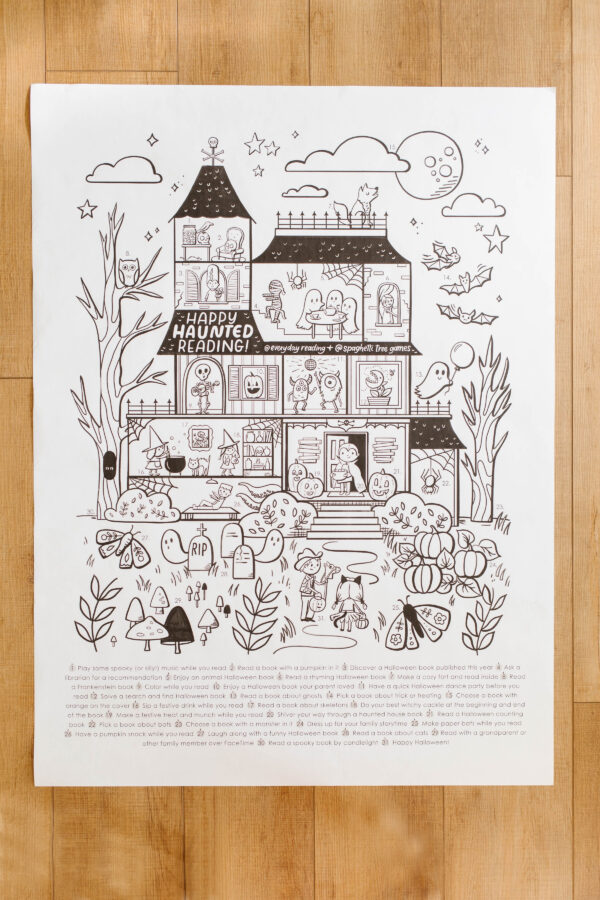 HAPPY
HAUNTED
READING!
@everyday reading + @spaghetti tree games
RIP
1 Play some spooky (or silly!) music while you read 2 Read a book with a pumpkin in it 3 Discover a Halloween book published this year 4 Ask a
librarian for a recommendation 5 Enjoy an animal Halloween book 6 Read a rhyming Halloween book 7 Make a cozy fort and read inside 8 Read
a Frankenstein book 9 Color while you read 10 Enjoy a Halloween book your parent loved 11 Have a quick Halloween dance party before you
read 12 Solve a search and find Halloween book 13 Read a book about ghosts 14 Pick a book about trick or treating 15 Choose a book with
orange on the cover 16 Sip a festive drink while you read 17 Read a book about skeletons 18 Do your best witchy cackle at the beginning and end
of the book 19 Make a festive treat and munch while you read 20 Shiver your way through a haunted house book 21 Read a Halloween counting
book 22 Pick a book about bats 23 Choose a book with a monster in it 24 Dress up for your family storytime 25 Make paper bats while you read
26 Have a pumpkin snack while you read 27 Laugh along with a funny Halloween book 28 Read a book about cats 29 Read with a grandparent or
other family member over FaceTime 30 Read a spooky book by candlelight 31 Happy Halloween!